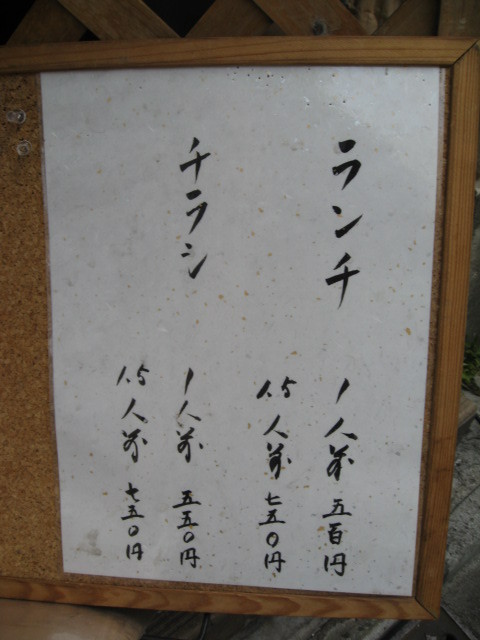 ランチ 1人前 五百円
1.5人前 七五〇円
チラシ 1人前 五五〇円
1.5人前 七五〇円